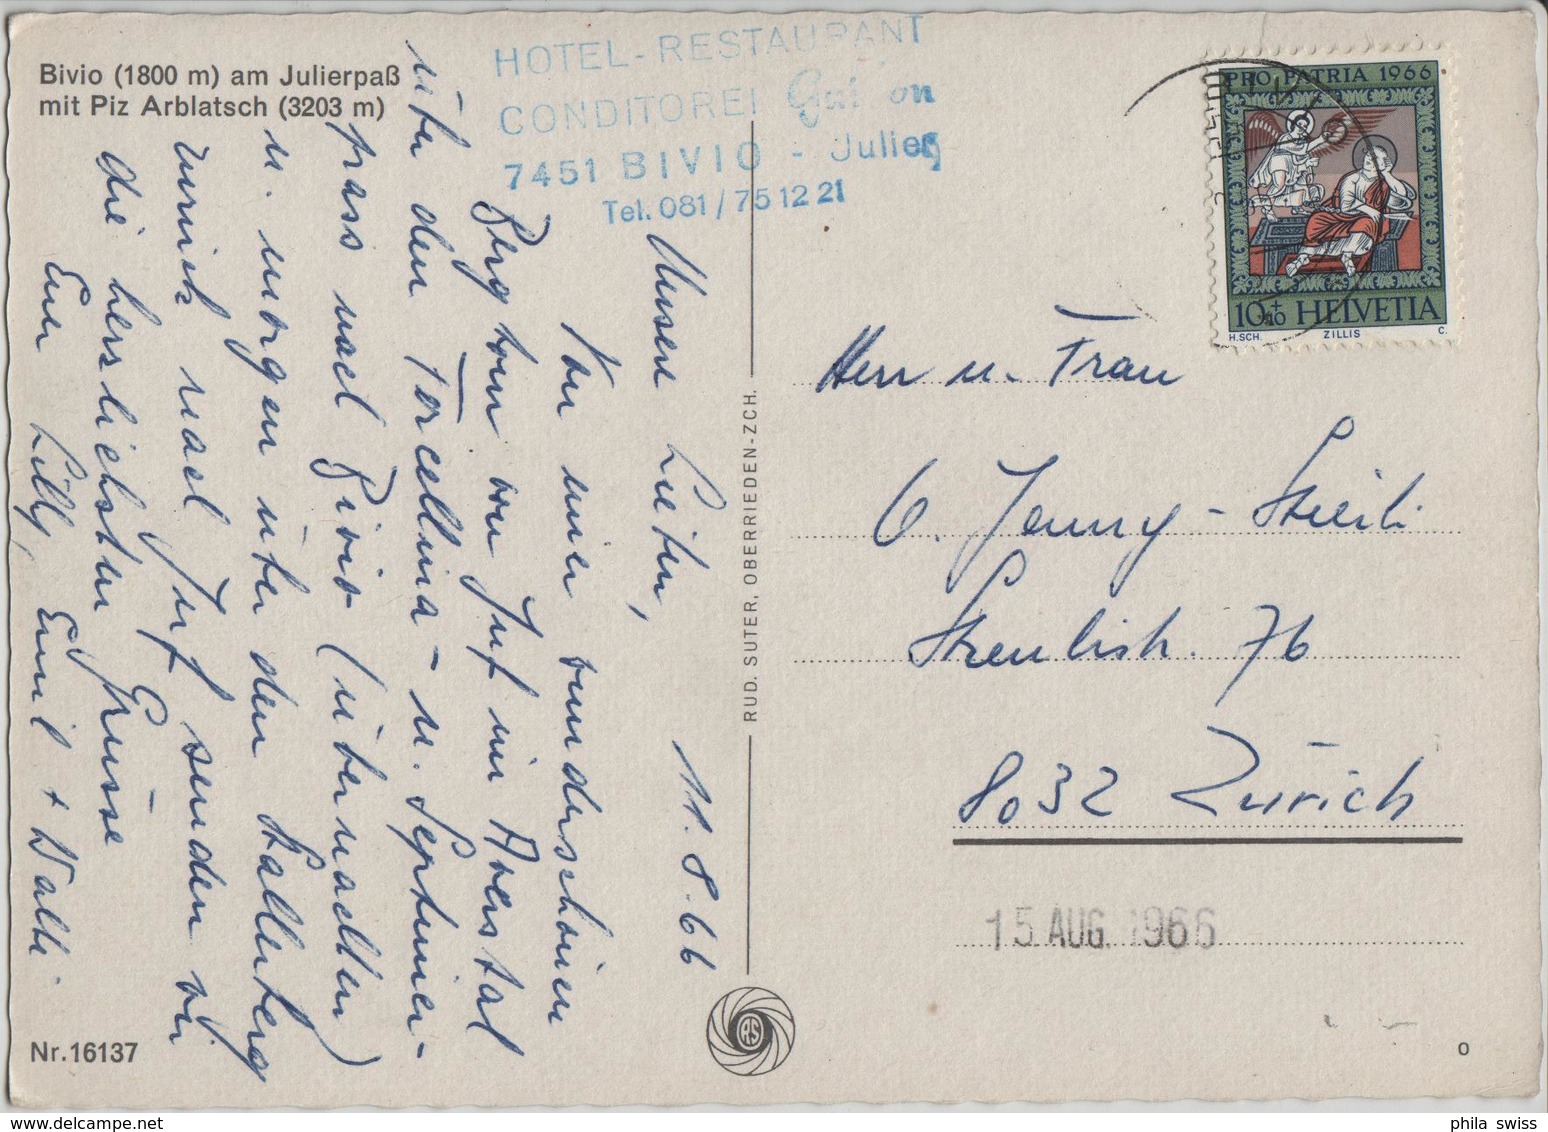 Bivio (1800 m) am Julierpaß
mit Piz Arblatsch (3203 m)
HOTEL-RESTAURANT
CONDITOREI
7451 BIVIO - Julier
Tel. 081 / 75 12 21
11.8.66
Unsere Lieben,
Von einer wunderschönen
Berg tour von Juf im Averstal
über den Forcellina- u. Septimer-
pass nach Bivio (übernachten)
u. morgen über den Stallerberg
zurück nach Juf senden wir
die herzlichsten Grüsse
Eure Lilly, Emil + Walti.
PRO PATRIA 1966
10+10 HELVETIA
H.SCH. ZILLIS C.
Herr u. Frau
G. Jenny-Streili
76
8032 Zürich
15. AUG. 1966
RUD. SUTER, OBERRIEDEN-ZCH.
RS
Nr.16137
0
phila swiss